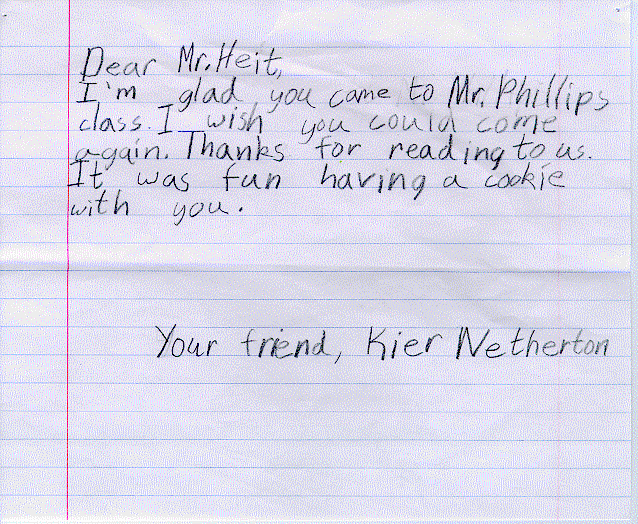 Dear Mr. Heit,
I'm glad you came to Mr. Phillips
class. I wish you could come
again. Thanks for reading to us.
It was fun having a cookie
with you.
Your friend, Kier Netherton